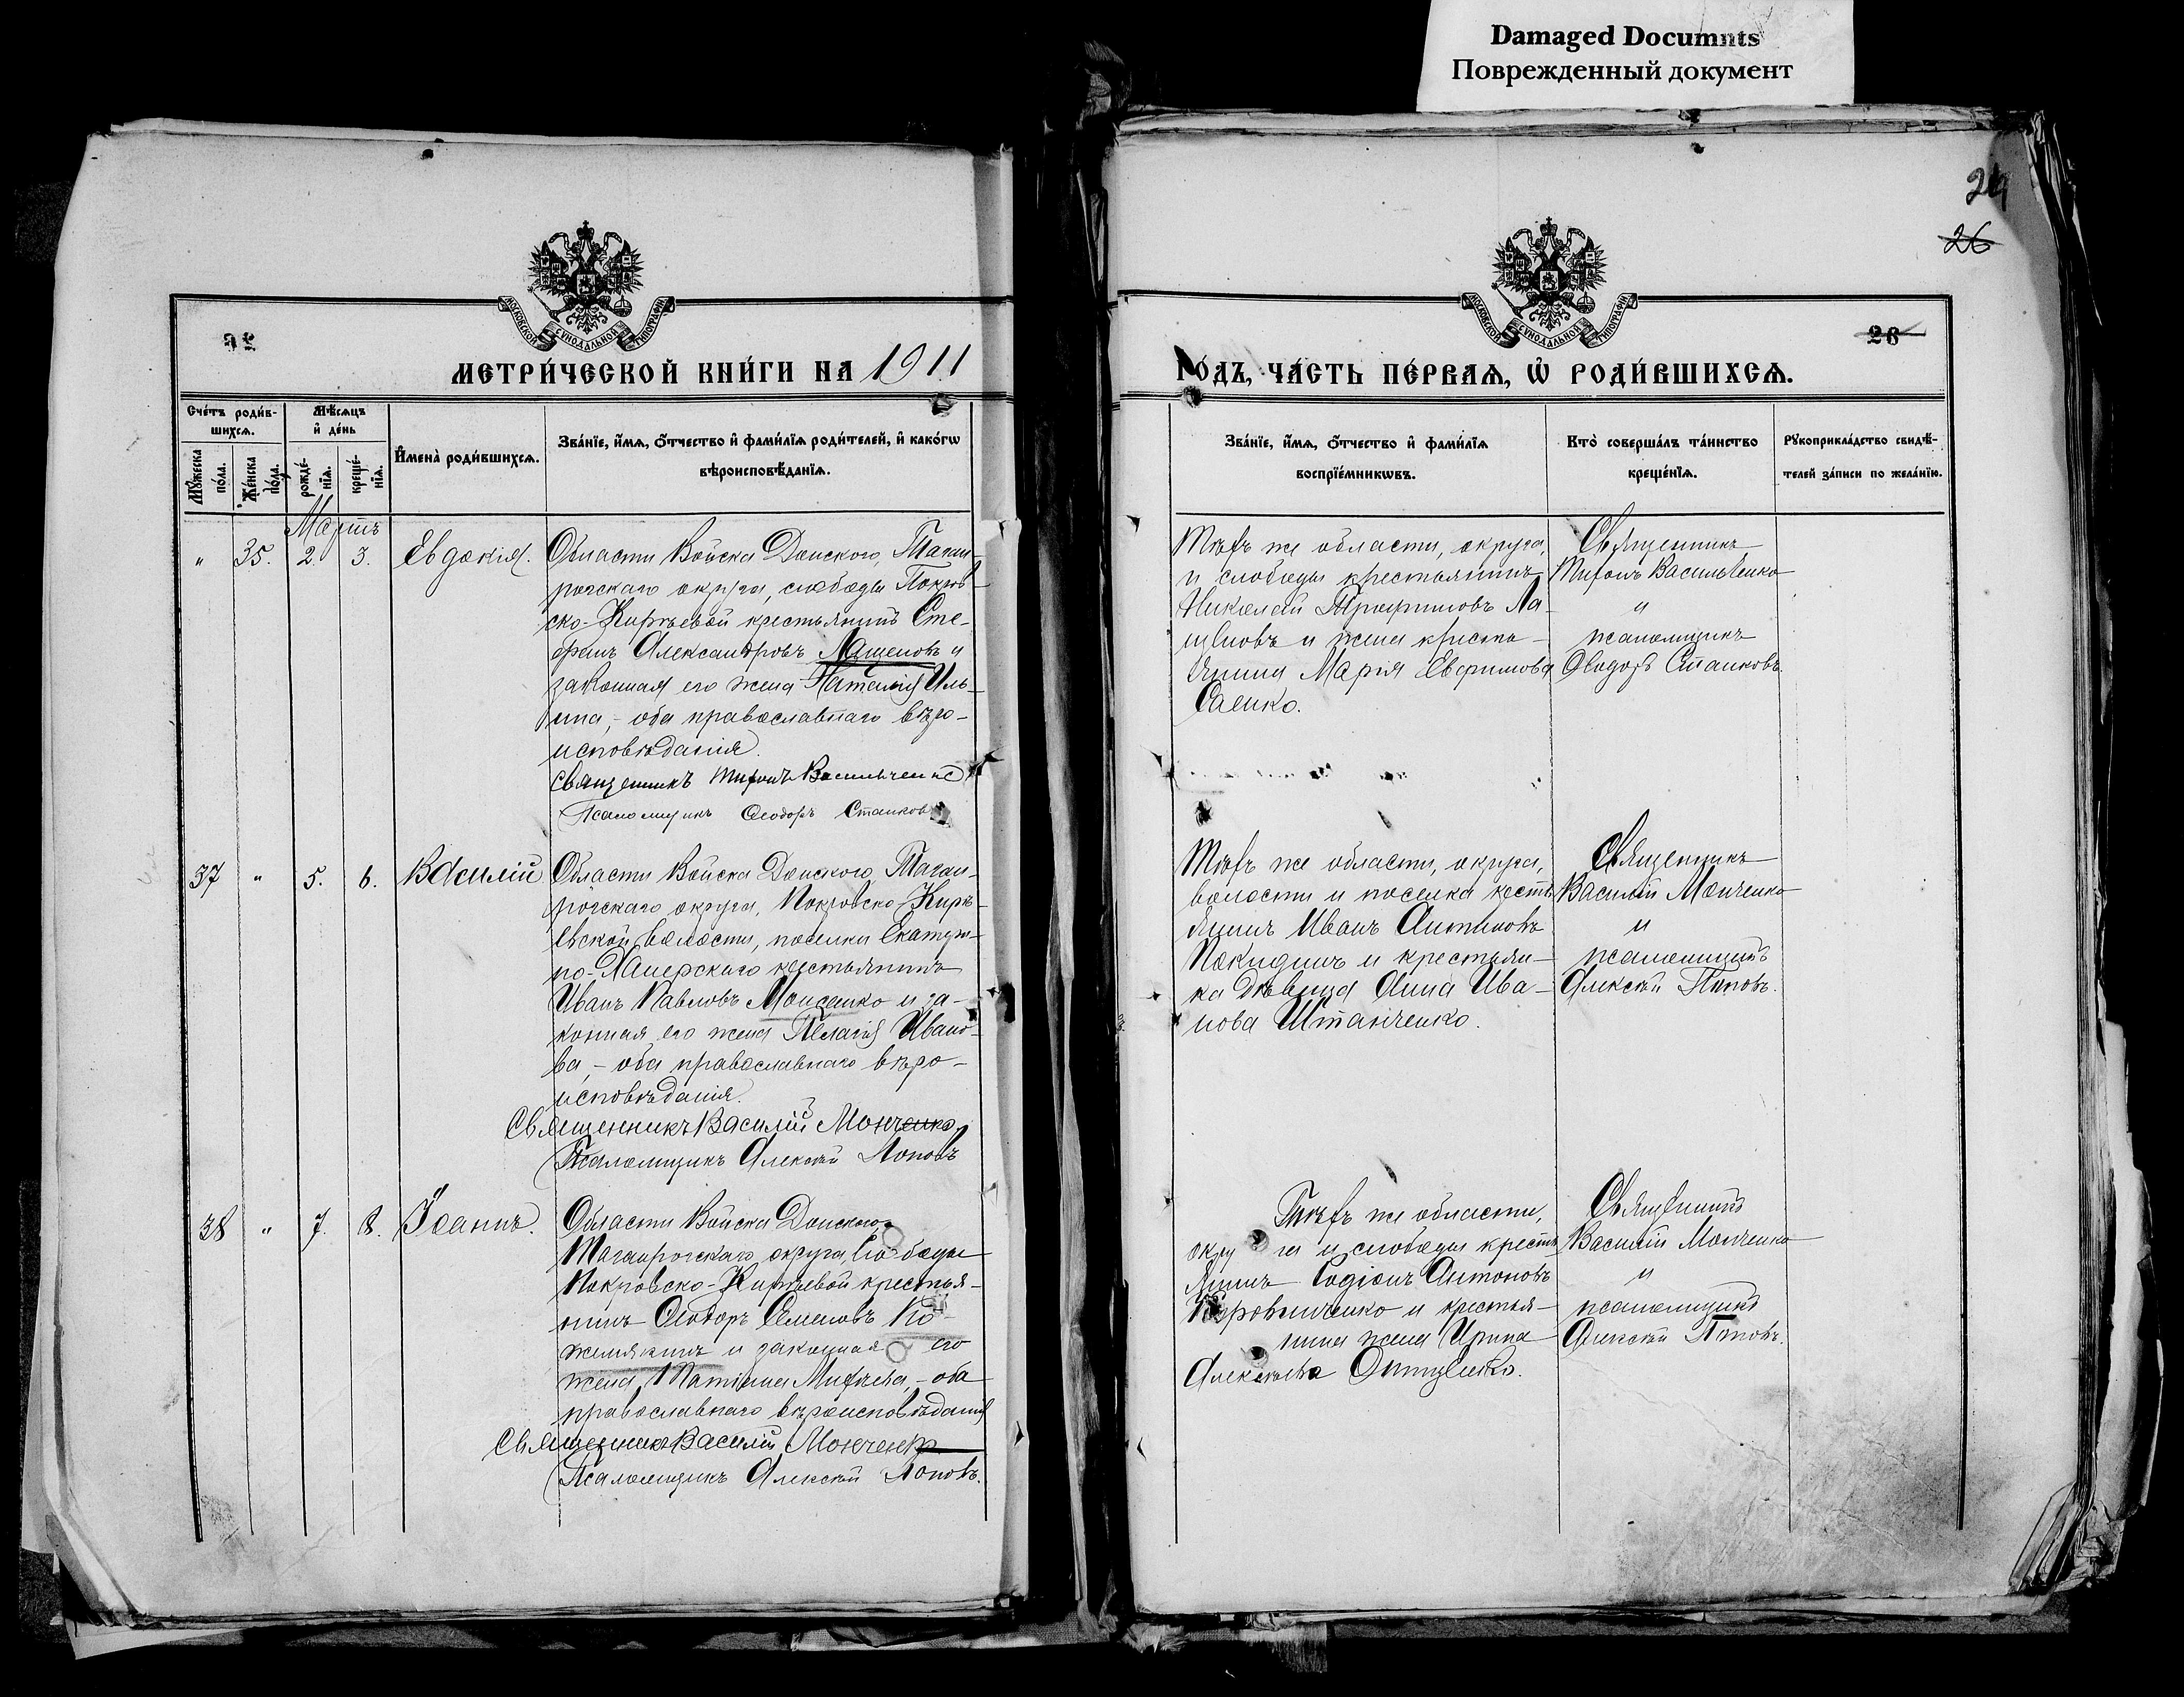 Damaged Documnts
Поврежденный документ
24
26
26
МОСКОВСКОЙ СѴНОДАЛЬНОЙ ТИПОГРАФІИ
МЕТРИ́ЧЕСКОЙ КНИ́ГИ НА 1911
Сче́тъ роди́в-
шихсѧ.
Мꙋ́жеска по́ла.
Же́нска по́ла.
Мѣ́сѧцъ
и҆ де́нь
рожде́-
нїѧ.
креще́-
нїѧ.
И҆мена̀ роди́вшихсѧ.
Зва́нїе, и҆́мѧ, ѻ҆́тчество и҆ фами́лїѧ роди́телей, и҆ како́гѡ
вѣроисповѣ́данїѧ.
Мартъ
" 35. 2. 3. Евдокія.
Области Войска Донского, Таган-
рогскаго округа, слободы Покров-
ско-Кирѣевой крестьянинъ Сте-
фанъ Александровъ Лащеновъ и
законная его жена Наталія Иль-
ина, - оба православнаго вѣро-
исповѣданія.
Священникъ Митонъ Васильченко
Псаломщикъ Ѳеодоръ Станковъ
37 " 5. 6. Василій
Области Войска Донского, Таган-
рогскаго округа, Покровско-Кирѣ-
евской волости, поселка Екатери-
но-Хаперскаго крестьянинъ
Иванъ Павловъ Моисеенко и за-
конная его жена Пелагія Ивано-
ва, - оба православнаго вѣро-
исповѣданія.
Священникъ Василій Монченко.
Псаломщикъ Алексѣй Поповъ
38 " 7. 8. Іоаннъ.
Области Войска Донского,
Таганрогскаго округа, слободы
Покровско-Кирѣевой крестья-
нинъ Ѳеодоръ Семеновъ Ко-
жемякинъ и законная его
жена Татіана Михѣева, - оба
православнаго вѣроисповѣданія
Священникъ Василій Монченко
Псаломщикъ Алексѣй Поповъ.
МОСКОВСКОЙ СѴНОДАЛЬНОЙ ТИПОГРАФІИ
ГО́ДЪ, ЧА́СТЬ ПЕ́РВАѦ, Ѡ҆ РОДИ́ВШИХСѦ.
Зва́нїе, и҆́мѧ, ѻ҆́тчество и҆ фами́лїѧ
воспрїе́мникѡвъ.
Кто̀ соверша́лъ та́инство
креще́нїѧ.
Рꙋкоприкла́дство свидѣ́-
телей за́писи по жела́нїю.
Тѣхъ же области, округа,
и слободы крестьянинъ
Николай Трофимовъ Ла-
щеновъ и жена крестья-
нина Марія Евфимова
Саенко.
Священникъ
Митонъ Васильченко
и
псаломщикъ
Ѳеодоръ Станковъ
Тѣхъ же области, округа,
волости и поселка крестья-
янинъ Иванъ Антиповъ
Покидинъ и крестьян-
ка дѣвица Анна Ива-
нова Штанченко.
Священникъ
Василій Монченко
и
псаломщикъ
Алексѣй Поповъ.
Тѣхъ же области,
округа и слободы кресть
янинъ Родіонъ Антоновъ
и крестья-
нина жена Ирина
Алексѣева
Священникъ
Василій Монченко
и
псаломщикъ
Алексѣй Поповъ.